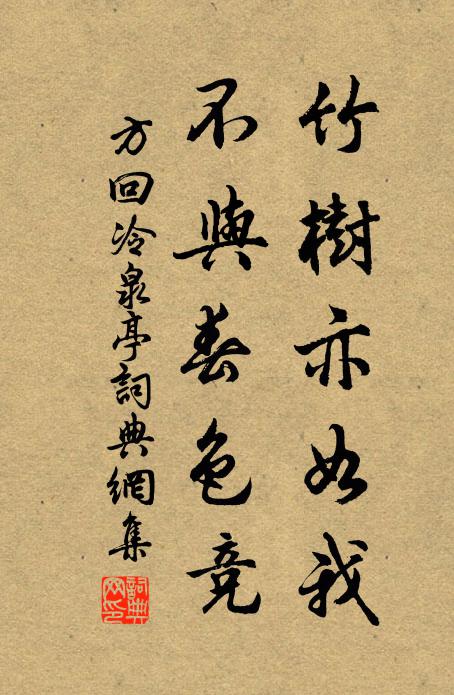 竹樹亦如我
不與春色競
方回冷泉亭詞典網集
詞典網印